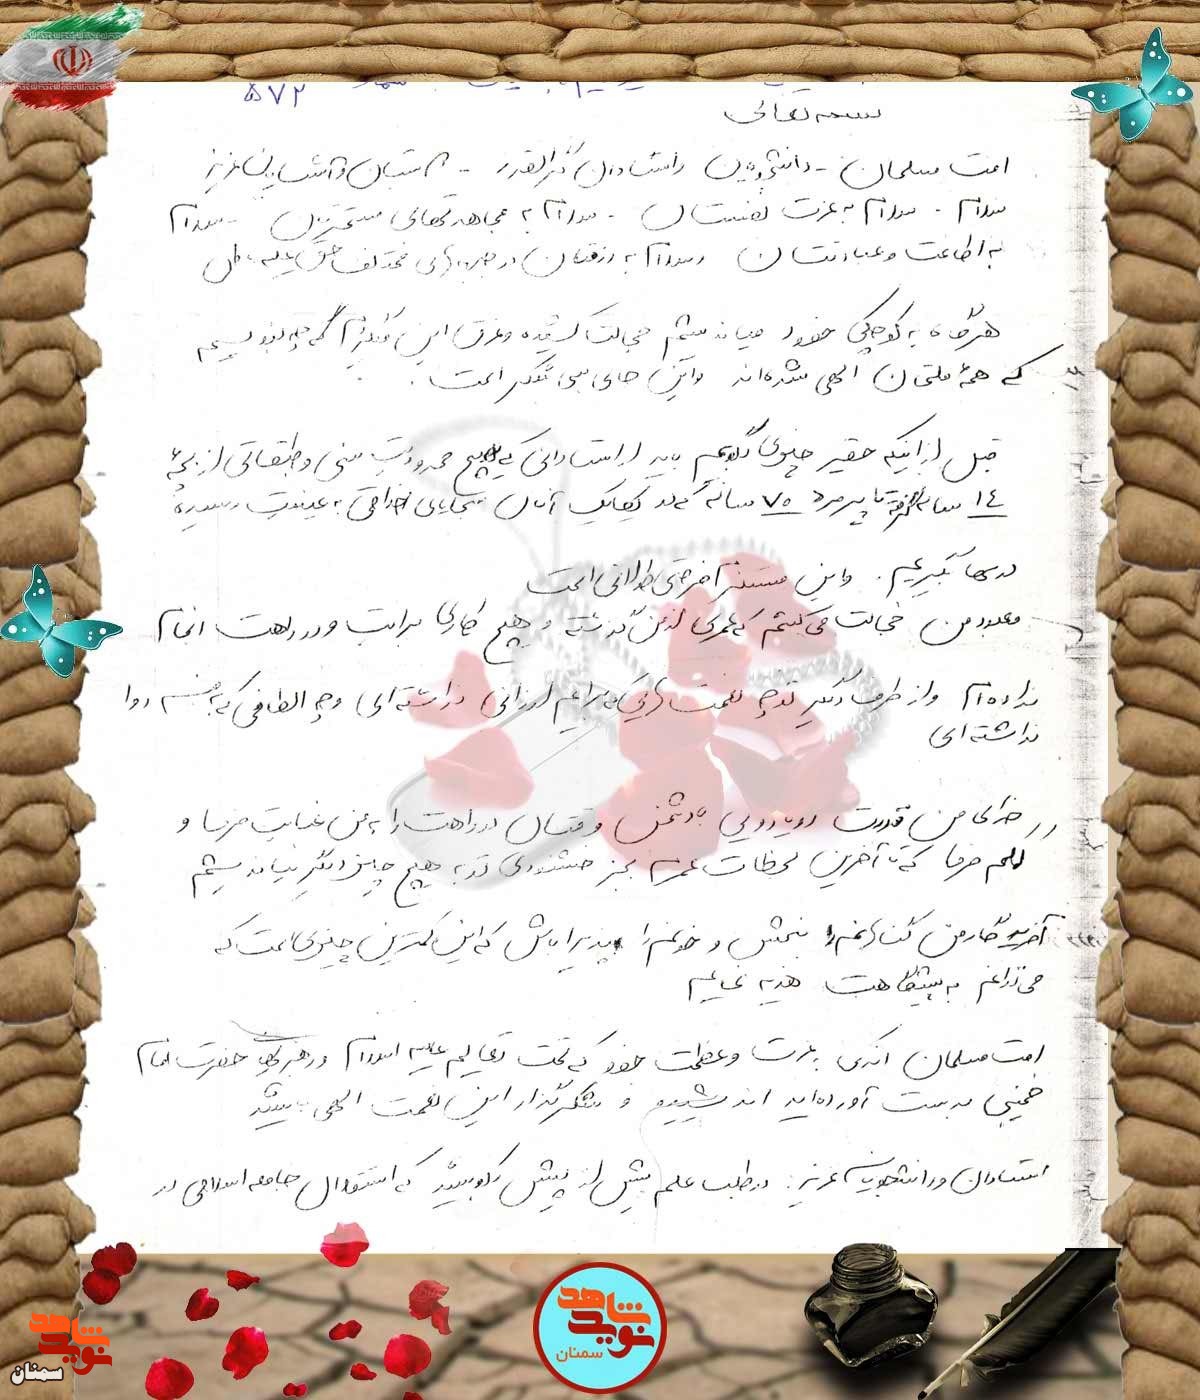 ۵۷۲
بسمه تعالی
امت مسلمان - دانشجویان و استادان گرانقدر - دوستان و آشنایان عزیز
سلام . سلام به عزت نفستان . سلام به مجاهدتهای مستمرتان . سلام
به اطاعت و عبادتتان و سلام به رزمتان در جبهه‌های مختلف حق علیه باطل
هرگاه به کوچکی خود میاندیشم خجالت کشیده و غرق این فکرم که چه بنویسم
که همهٔ ملتمان الهی شده‌اند و این جای بسی شکر است .
قبل از اینکه حقیر چیزی بگویم باید از استادانی که هیچ محدودیت سنی و طبقاتی از بچهٔ
۱۴ ساله گرفته تا پیرمرد ۷۰ ساله که در یکایک آنان سجایای اخلاقی به عینیت رسیده
درسها بگیریم . و این مستلزم فرصتی طولانی است
معبود من خجالت می‌کشم که عمری از من گذشته و هیچ کاری برایت و در راهت انجام
نداده‌ام و از طرف دیگر تو چه نعمت هایی که برایم ارزانی نداشته‌ای و چه الطافی که به من روا
نداشته‌ای
خدای من قدرت رویارویی با دشمن و قتال در راهت را به من عنایت فرما و
کمکم فرما که تا آخرین لحظات عمرم بجز خشنودی تو به هیچ چیز دیگر نیاندیشم
آفریدگار من گناهانم را ببخش و خونم را پذیرا باش که این کمترین چیزی است که
می‌توانم به پیشگاهت هدیه نمایم
امت مسلمان اندکی به عزت و عظمت خود که تحت تعالیم عالیه اسلام و رهبریهای حضرت امام
خمینی بدست آورده‌اید اندیشیده و شکرگذار این نعمت الهی باشید
استادان و دانشجویان عزیز : در طلب علم بیش از پیش بکوشید که استقلال جامعه اسلامی در
نوید شاهد
سمنان
نوید شاهد
سمنان